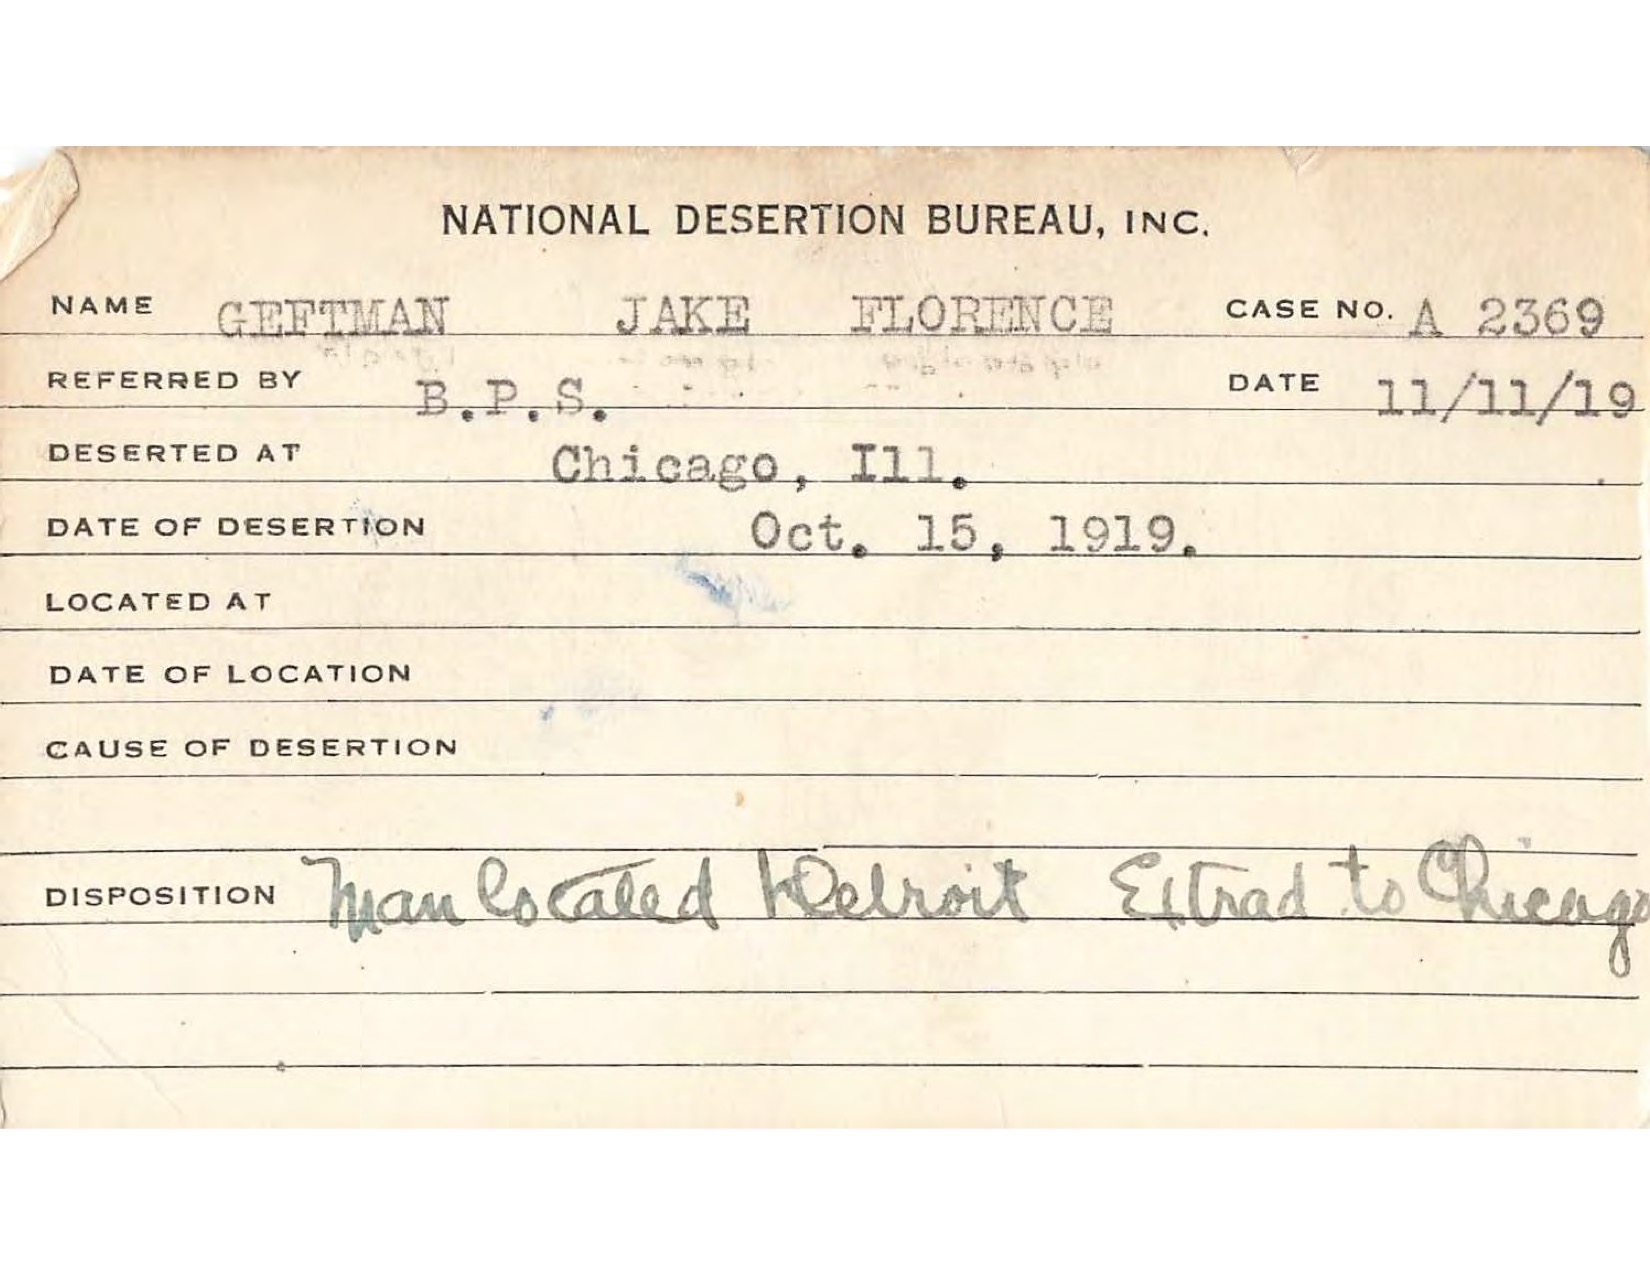 NATIONAL DESERTION BUREAU, INC.
NAME GEFTMAN JAKE FLORENCE CASE NO. A 2369
REFERRED BY B.P.S. DATE 11/11/19
DESERTED AT Chicago, Ill.
DATE OF DESERTION Oct. 15, 1919.
LOCATED AT
DATE OF LOCATION
CAUSE OF DESERTION
DISPOSITION Man located Detroit Extrad to Chicago